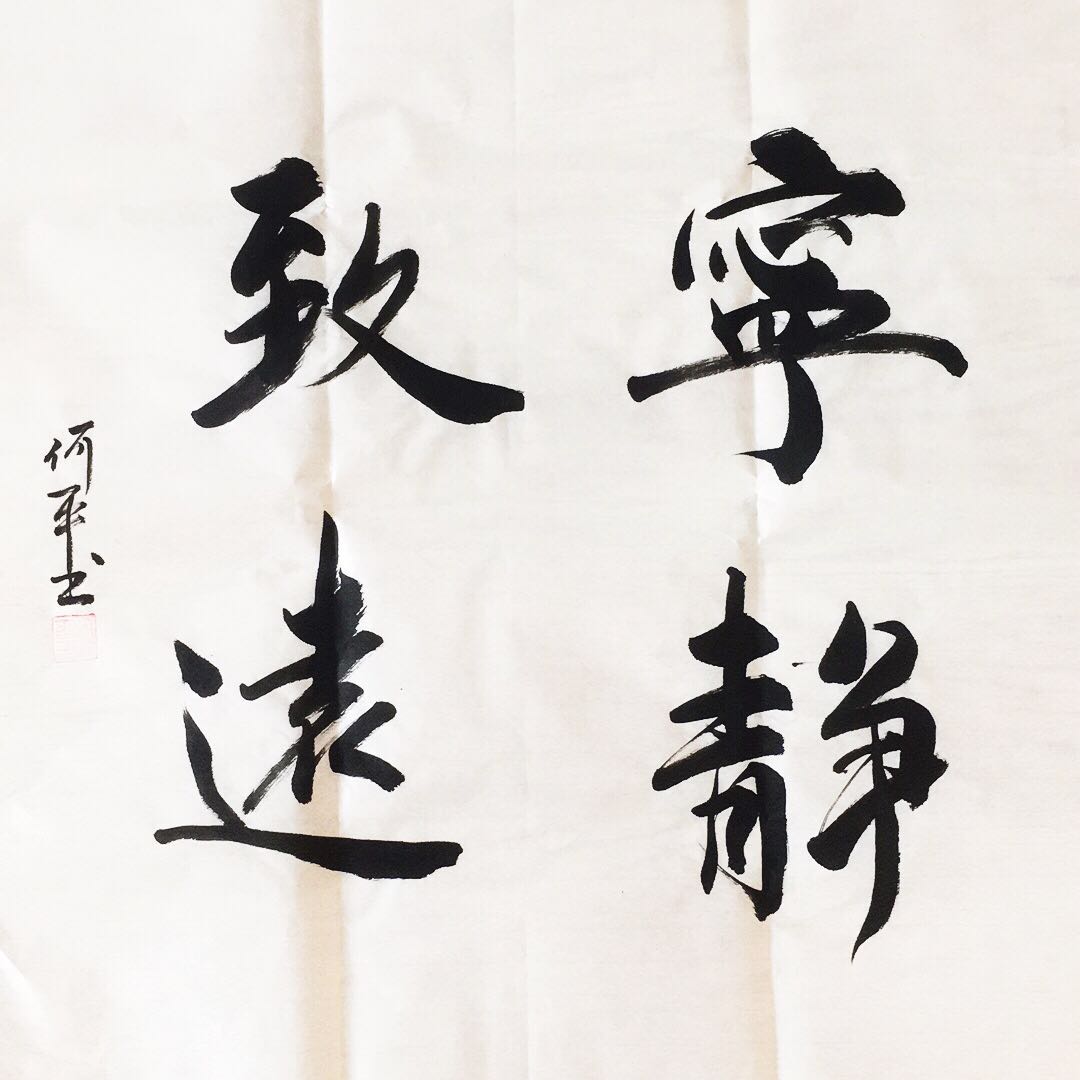 寧靜
致遠
何平书